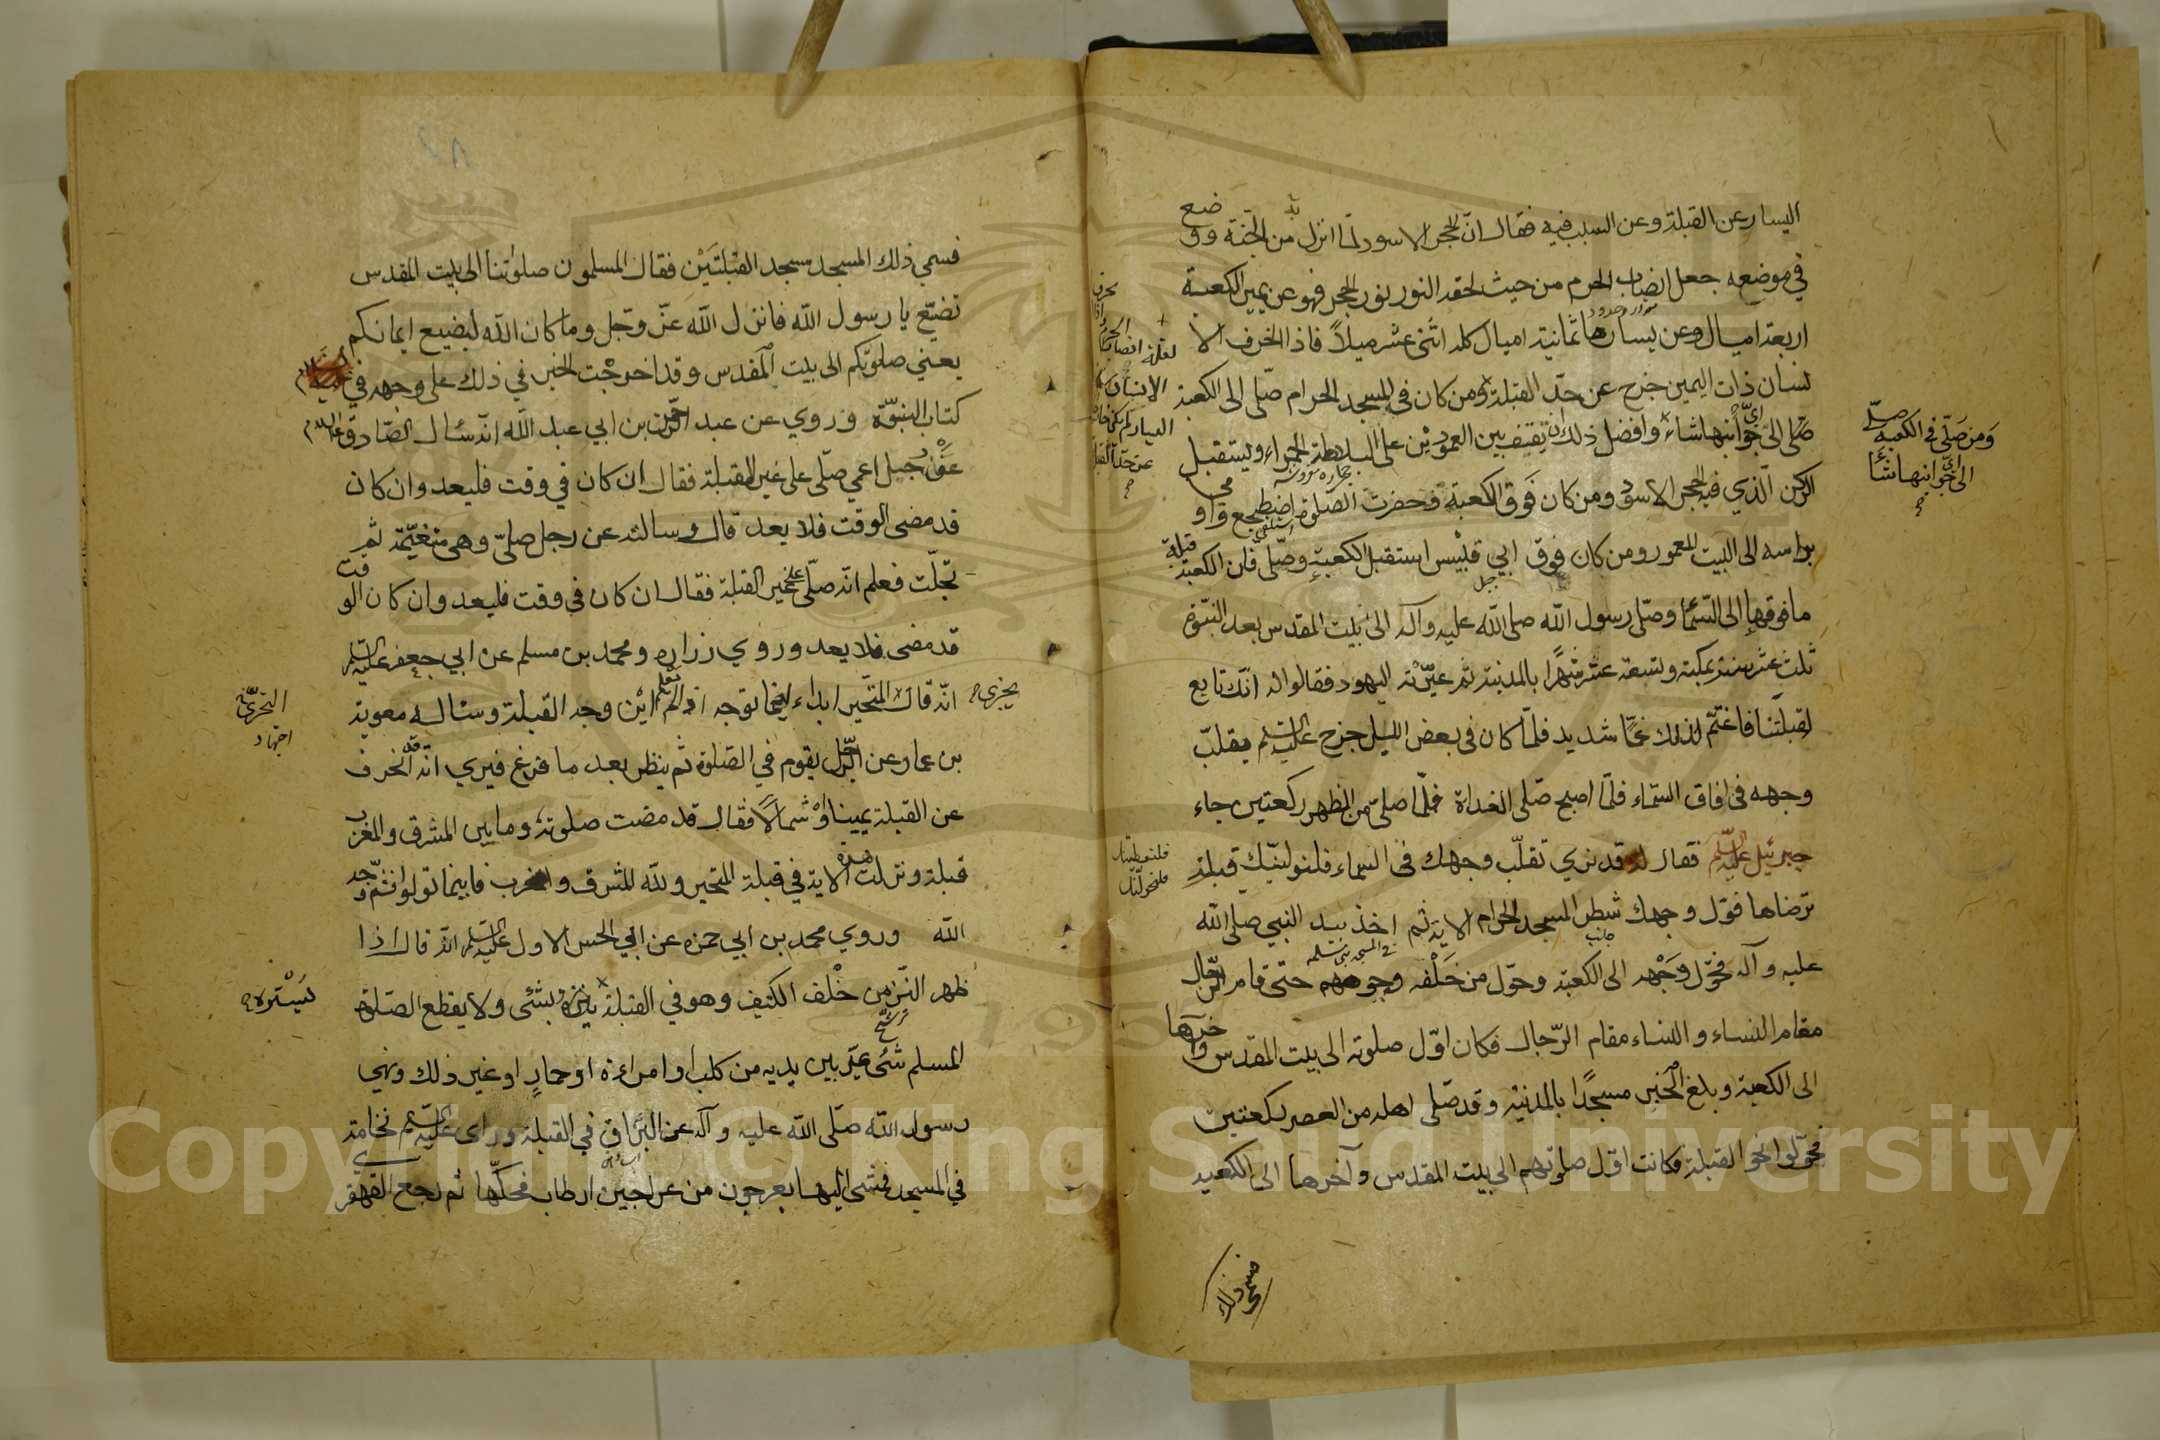 اليسار عن القبلة وعن السبب فيه فقال انّ الحجر الاسود لمّا انزل به من الجنة ووضع
في موضعه جعل انصاب الحرم من حيث لحقه النور نور الحجر فهو عن يمين الكعبة
اربعة اميال وعن يسارها ثمانية اميال كله اثنى عشر ميلاً فاذا انحرف الا
نسان ذات اليمين خرج عن حدّ القبلة ومن كان في المسجد الحرام صلّى الى الكعبة
صلّى الى ايّ جوانبها شاء وافضل ذلك ان يقف بين العمودين على البلاطة الحمراء ويستقبل
الركن الّذي فيه الحجر الاسود ومن كان فوق الكعبة وحضرت الصّلوة اضطجع واومى
براسه الى البيت المعمور ومن كان فوق ابي قبيس استقبل الكعبة وصلّى فان الكعبة قبلة
ما فوقها الى السّماء وصلّى رسول الله صلى الله عليه وآله الى بيت المقدس بعد النبّوة
ثلث عشر سنة بمكة وتسعة عشر شهرًا بالمدينة ثم عيّرته اليهود فقالوا له انّك تابع
لقبلتنا فاغتمّ لذلك غمًّا شديد فلمّا كان في بعض الليل خرج عليه السّلم يقلّب
وجهه في افاق السّماء فلمّا اصبح صلّى الغداة فلمّا صلىّ من الظهر ركعتين جاء
جبرئيل عليه السّلم فقال له قد نرى تقلّب وجهك في السماء فلنولينّك قبلة
ترضاها فولّ وجهك شطر المسجد الحرام الاية ثم اخذ بيد النبي صلى الله
عليه وآله فحوّل وَجْهه الى الكعبة وحوّل من خَلْفه وجوههم حتّى قام الرّجال
مقام النساء والنساء مقام الرّجال فكان اوّل صلوته الى بيت المقدس وآخرها
الى الكعبة وبلغ الخبر مسجدًا بالمدينة وقد صلّى اهله من العصر ركعتين
فحوّلوا نحو القبلة فكانت اوّل صلوتهم الى بيت المقدس وآخرها الى الكعبة
وَمن صَلّى في الكعبة صلّى
الى ايّ جوانبها شاء
جبل
جانب
في المسجد بني سلمة
فسمي ذلك
فسمي ذلك المسجد مسجد القبلتَيْن فقال المسلمون صلوتنا الى بيت المقدس
تضيّع يا رسول الله فانزل الله عزّ وجّل وما كان الله ليضيع ايمانكم
يعني صلوتكم الى بيت المقدس وقد اخرجت الخبر في ذلك على وجهه في
كتاب النبوّة وروي عن عبد الرحمن بن ابي عبد الله انّه سئال الصّادق عليه السلام
عَنْ رجل اعمى صلّى على غير القبلة فقال ان كان في وقت فليعد وان كان
قد مضى الوقت فلا يعد قال وسالته عن رجل صلّى وهى متغيّمة ثم
تجلّت فعلم انّه صلّى على غير القبلة فقال ان كان في وقت فليعد وان كان الوقت
قد مضى فلا يعد وروي زراره ومحمد بن مسلم عن ابي جعفر عليه السّلم
انّه قال المتحيّر ابداء اينما توجه اذا لم يعلم اين وجه القبلة وسئاله معوية
بن عمار عن الرّجل يقوم في الصّلوة ثم ينظر بعد ما فرغ فيرى انّه قد انحرف
عن القبلة يمينا اوْ شمالاً فقال قد مضت صلوته وما بين المشرق والمغرب
قبلة ونزلت هذه الاية في قبلة المتحير ولله المشرق والمغرب فاينما تولوا فثم وجه
الله وروي محمد بن ابي حمزه عن ابي الحسن الاول عليه السّلم انّه قال اذا
ظهر النّز من خلْف الكنيف وهو في القبلة يستره بشئ ولا يقطع الصّلوة
المسلم شئ يمرّ بين يديه من كلب او امراءة او حمارٍ او غير ذلك ونهى
رسول الله صلّى الله عليه وآله عن البزاق في القبلة وراى عليه السّلم نخامة
في المسجد فمشى اليها بعرجون من عراجين ارطاب فحكّها ثم رجع القهقرى
يجزى
التحرّى
اجتهاد
يَسْتره